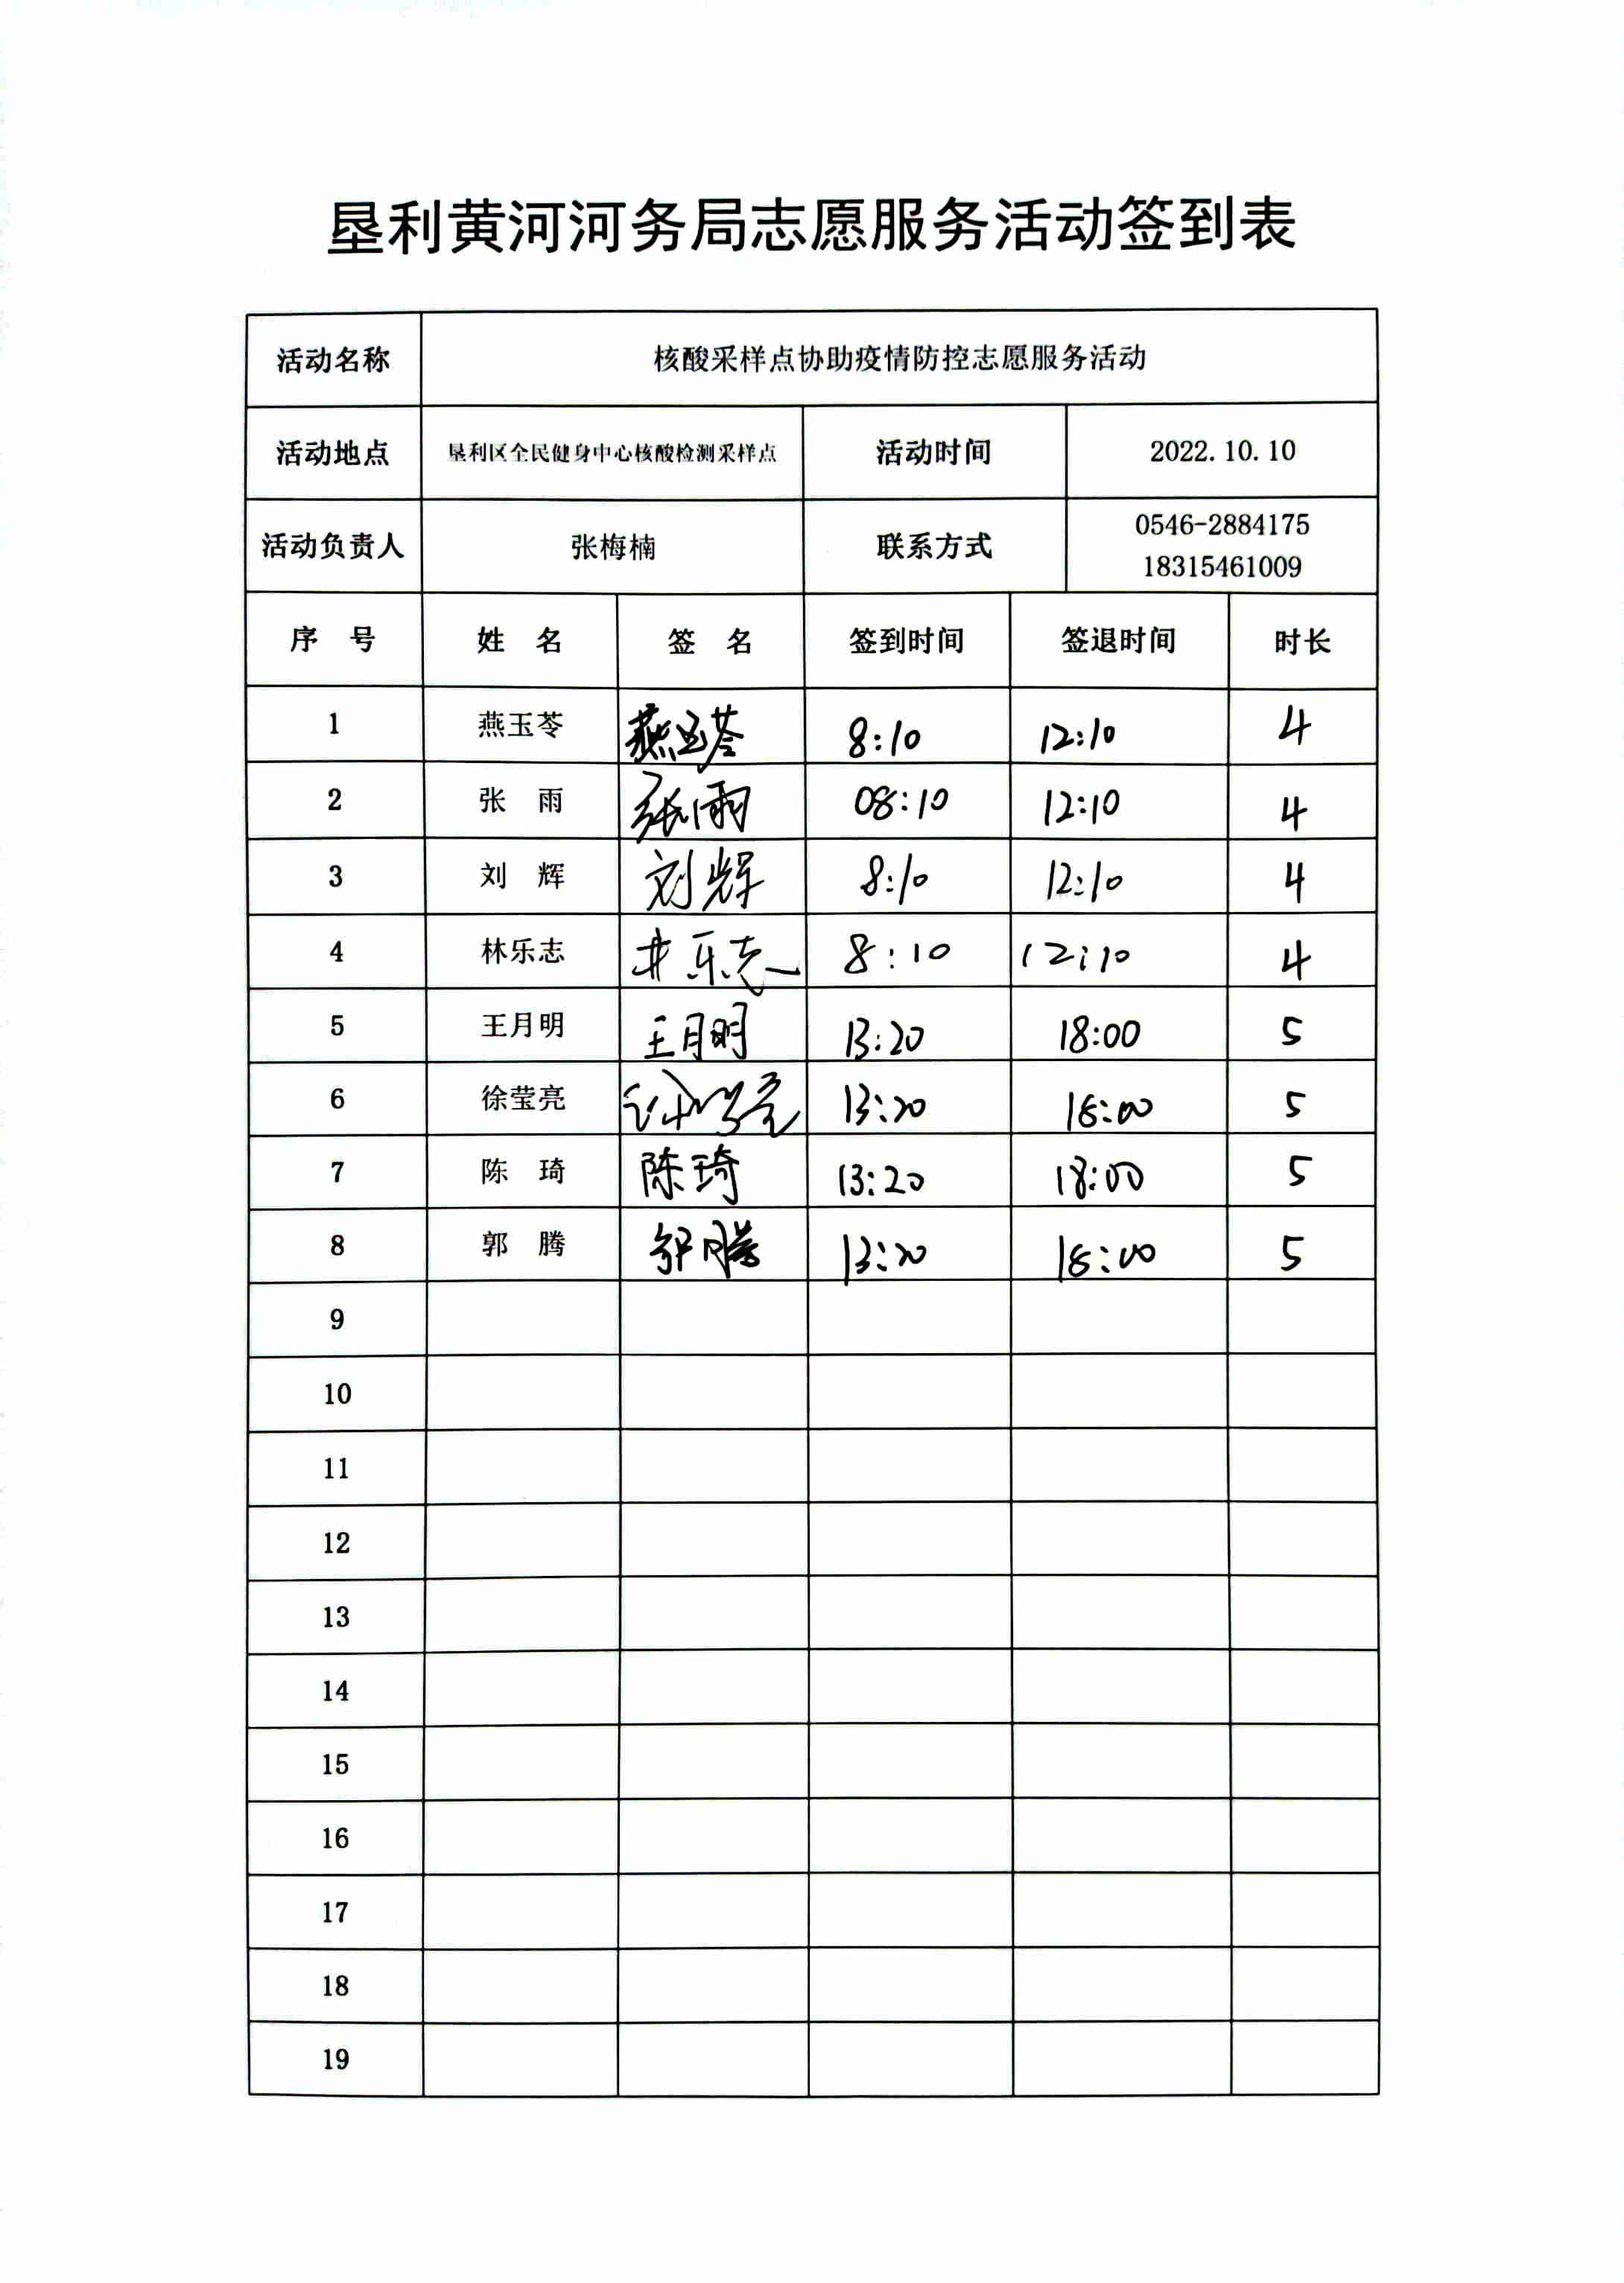 垦利黄河河务局志愿服务活动签到表
活动名称 核酸采样点协助疫情防控志愿服务活动
活动地点 垦利区全民健身中心核酸检测采样点 活动时间 2022.10.10
活动负责人 张梅楠 联系方式 0546-2884175
18315461009
序 号 姓 名 签 名 签到时间 签退时间 时长
1 燕玉苓 燕玉苓 8:10 12:10 4
2 张 雨 张雨 08:10 12:10 4
3 刘 辉 刘辉 8:10 12:10 4
4 林乐志 林乐志 8:10 12:10 4
5 王月明 王月明 13:20 18:00 5
6 徐莹亮 徐莹亮 13:20 18:00 5
7 陈 琦 陈琦 13:20 18:00 5
8 郭 腾 郭腾 13:20 18:00 5
9
10
11
12
13
14
15
16
17
18
19